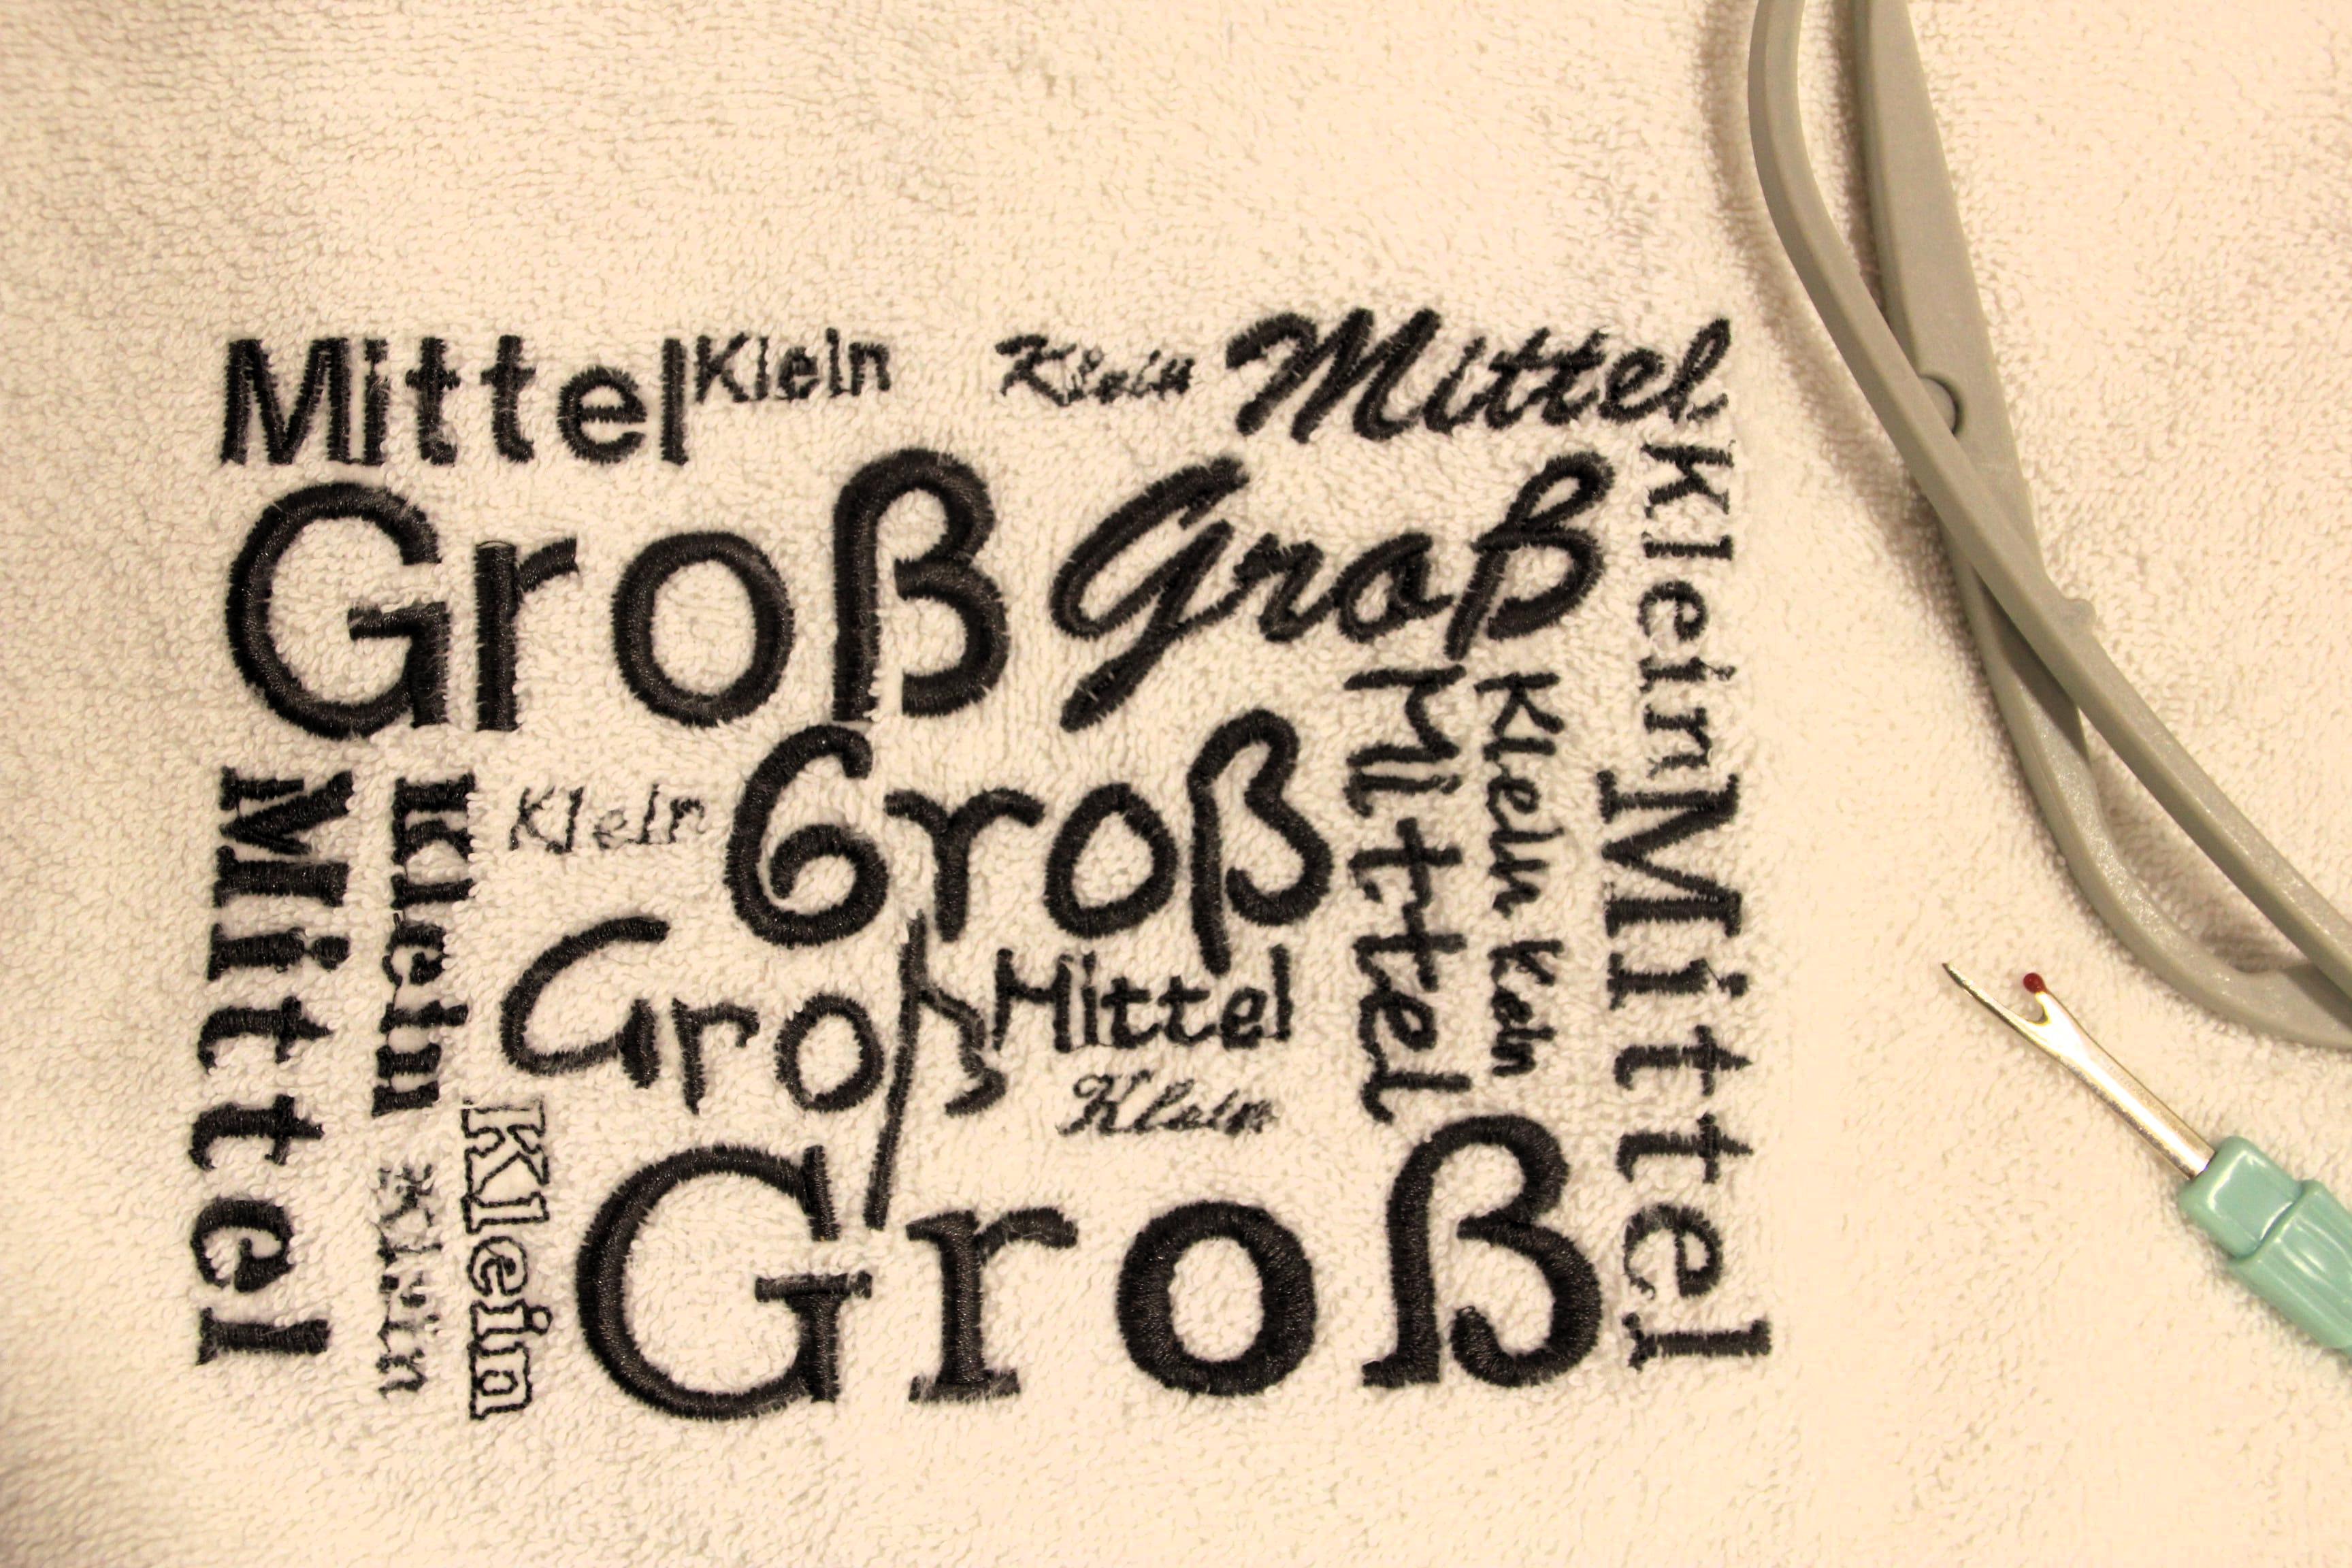 Mittel Klein Klein Mittel
Groß Groß
Klein
Mittel
Klein
Klein
Groß
Mittel
Klein
Groß
Mittel
Klein
Klein
Mittel
Klein
Klein
Groß